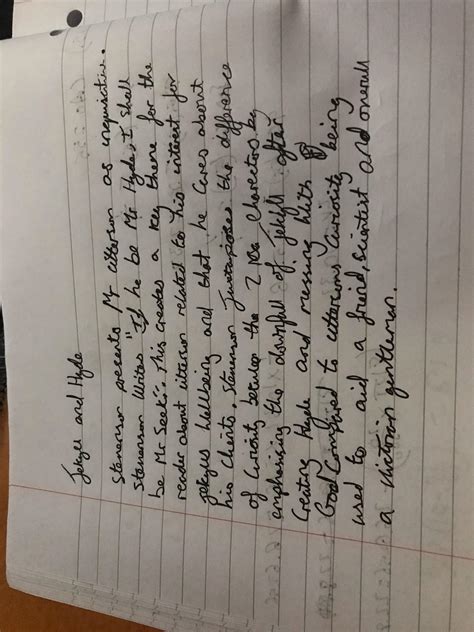 Jekyll and Hyde
Stevenson presents Mr utterson as inquisitive.
Stevenson Writes "If he be Mr Hyde, I shall
be Mr Seek". This creates a key theme for the
reader about utterson related to his interest for
jekylls wellbeing and that he Cares about
his Clients, Stevenson Juxtaposes the difference
of Curiosity between the 2 Charecters by
emphasising the downfall of Jekyll after
Creating Hyde and messing With
God Compared to uttersons Curiosity being
used to aid a freind, scientist and overall
a victorian gentleman.